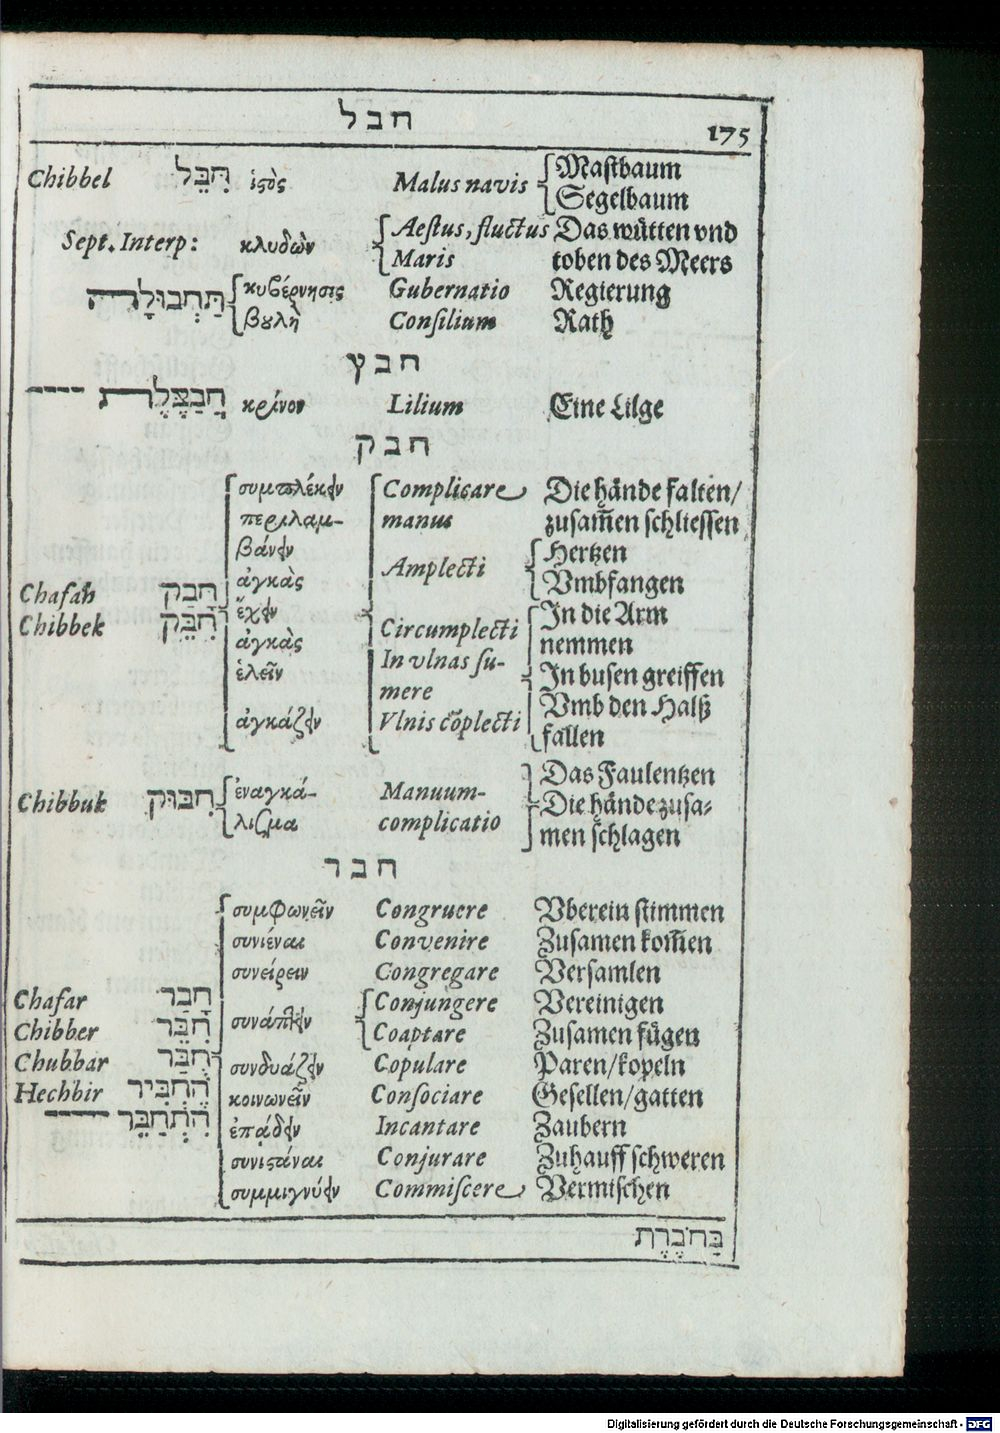 חבל
175
Chibbel חִבֵּל ἱςὸς Malus navis Mastbaum
Segelbaum
Sept. Interp: κλυδὼν Aestus, fluctus Das wütten vnd
Maris toben des Meers
תַּחְבּוּלָה κυβέρνησις Gubernatio Regierung
βουλὴ Consilium Rath
חבץ
חֲבַצֶּלֶת κρίνον Lilium Eine Lilge
חבק
συμπλέκειν Complicare Die hände falten/
περιλαμ- manus zusam̃en schliessen
βάνειν Hertzen
Amplecti
ἀγκὰς Vmbfangen
Chafah חָבַק ἔχειν In die Arm
Chibbek חִבֵּק ἀγκὰς Circumplecti nemmen
ἑλεῖν In vlnas su- In busen greiffen
mere Vmb den Halß
ἀγκάζειν Vlnis cõplecti fallen
Das Faulentzen
Chibbuk חִבּוּק ἐναγκά- Manuum- Die hände zusa-
λισμα complicatio men schlagen
חבר
συμφωνεῖν Congruere Vberein stimmen
συνιέναι Convenire Zusamen kom̃en
συνείρειν Congregare Versamlen
Chafar חָבַר Conjungere Vereinigen
Chibber חִבֵּר συνάπτειν Coaptare Zusamen fügen
Chubbar חֻבַּר συνδυάζειν Copulare Paren/kopeln
Hechbir הֶחְבִּיר κοινωνεῖν Consociare Gesellen/gatten
הִתְחַבֵּר ἐπᾴδειν Incantare Zaubern
συνιςάναι Conjurare Zuhauff schweren
συμμιγνύειν Commiscere Vermischen
בַּחֹבֶרֶת
Digitalisierung gefördert durch die Deutsche Forschungsgemeinschaft - DFG